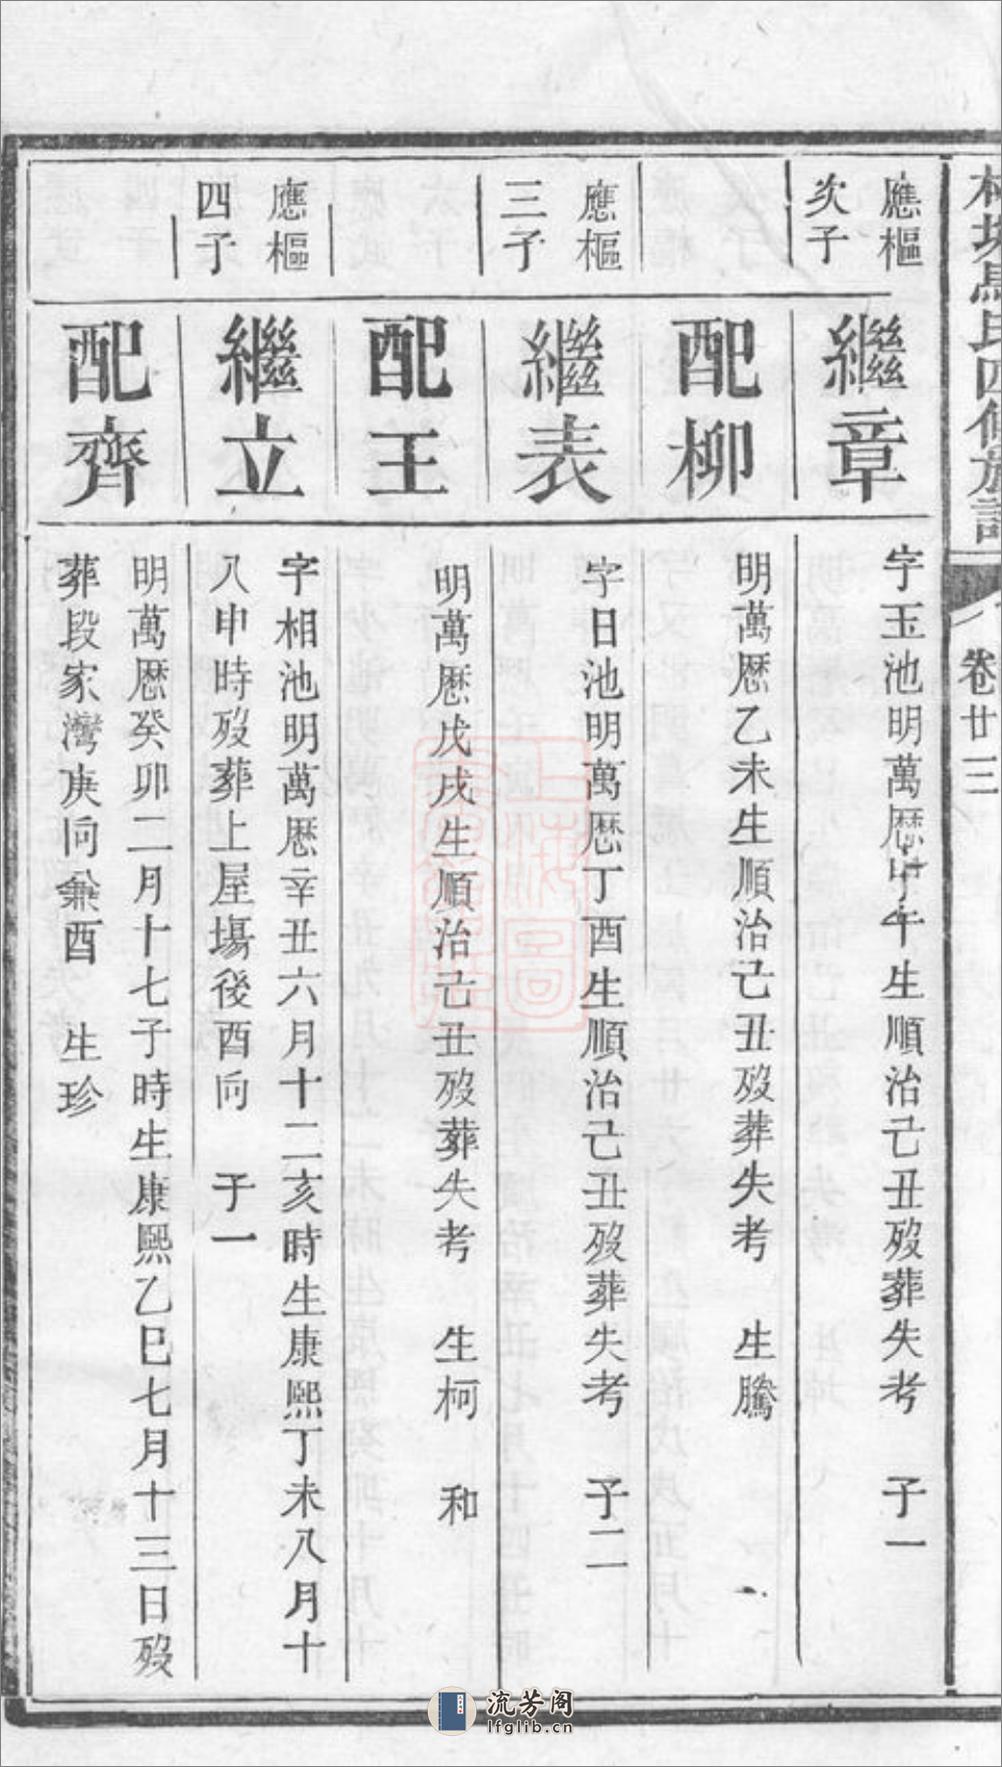 馬氏四修族譜
卷廿三
應樞
次子
繼章
字玉池明萬厯甲午生順治己丑歿葬失考　子一
配柳
明萬厯乙未生順治己丑歿葬失考　生騰
應樞
三子
繼表
字日池明萬厯丁酉生順治己丑歿葬失考　子二
配王
明萬厯戊戌生順治己丑歿葬失考　生柯　和
應樞
四子
繼立
字相池明萬厯辛丑六月十二亥時生康熙丁未八月十
八申時歿葬上屋場後酉向　子一
配齊
明萬厯癸卯二月十七子時生康熙乙巳七月十三日歿
葬段家灣庚向兼酉　生珍
上海圖
流芳阁
lfglib.cn